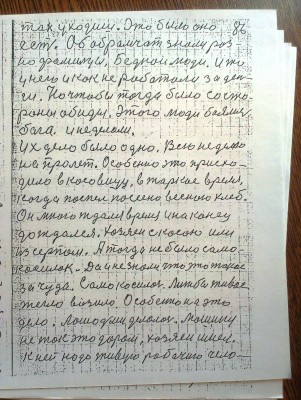 так уходили. Это было оно
сету. Об обратат знали роз
но драмитун. Бедной люди. И то
у него и как не работали за ден
ги. Но чтобы тогда было состо
роны обиды. Этого люди боялис
бога. и неделом.
их дело было одно. Всю неделю
на пролет. Особенно это приско
дило в косовицу, в жаркае время,
когда поспел посеено веено хлеб.
Он много ждали время и наконец
дождался. Хозяен скосою или
из серпом. А тогда не было само
косилок. Да и не знали что это такое
за чуда. Само косилок. Лиж бы живае
тегло возило. Особенно на это
дело. Лошадми делолос. Машину
не так это даром, хозяен имеи.
К ней надо живую рабочию чело